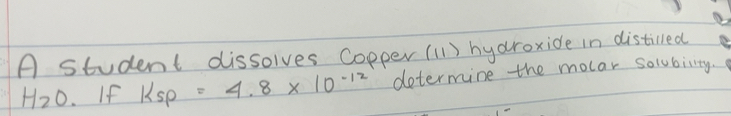 A student dissolves Copper (11) hydroxide in distilled
H2O. If Ksp = 4.8 × 10⁻¹² determine the molar solubility.